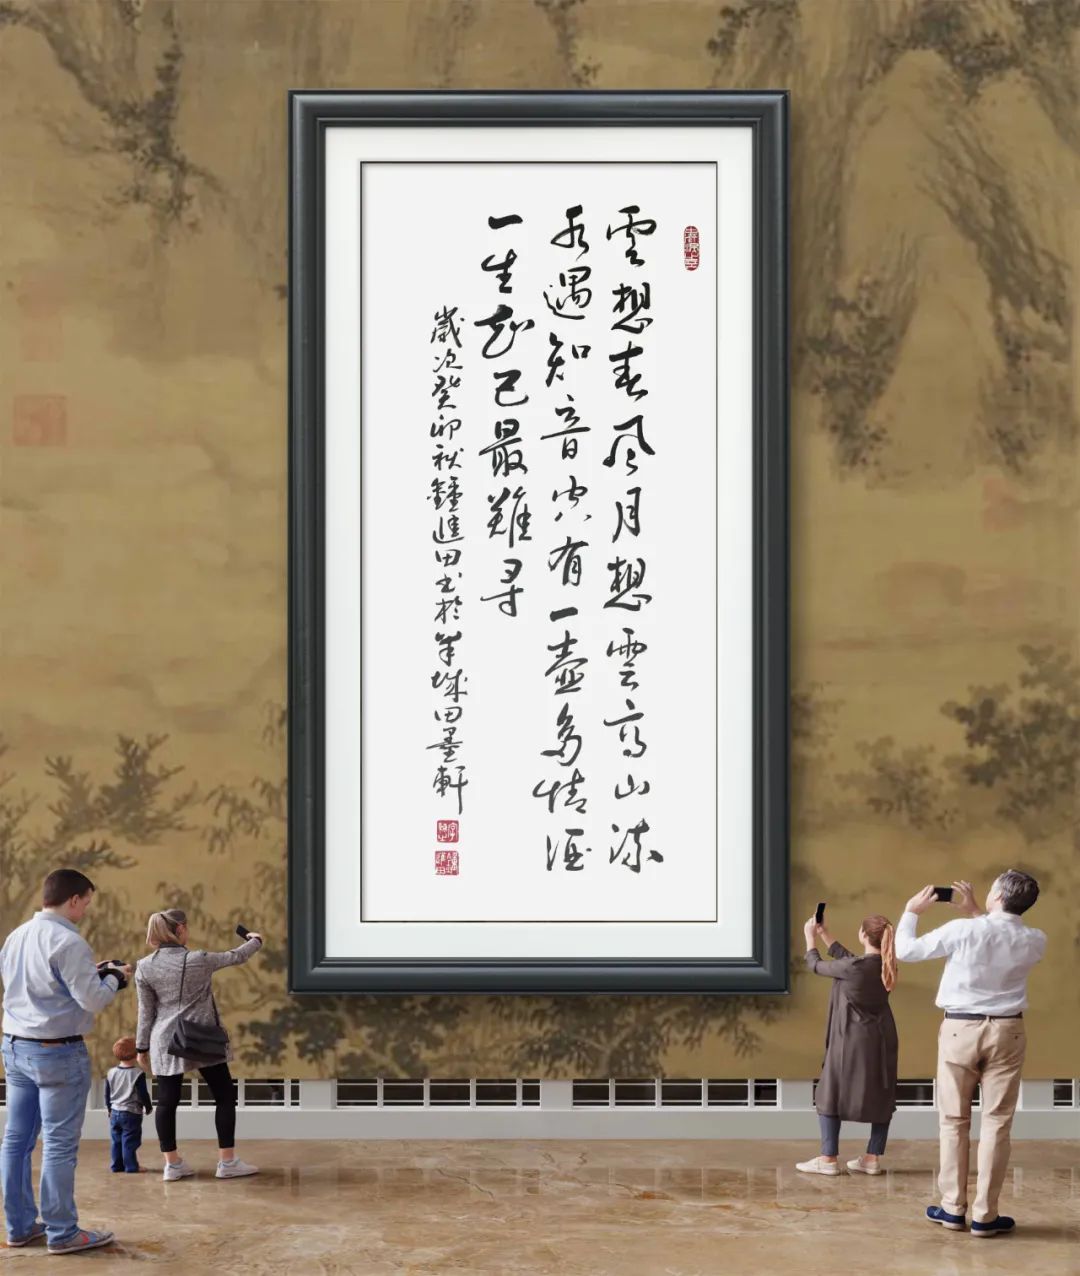 雲想春風月想雲高山流
水遇知音有一壺多情酒
一生知己最難尋
歲次癸卯秋鍾進田书於羊城田墨軒